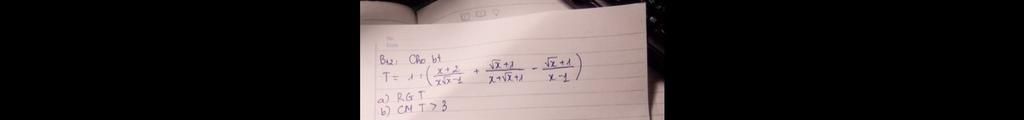 B12: Cho bt
T = 1 : ( \frac{x+2}{x\sqrt{x}-1} + \frac{\sqrt{x}+1}{x+\sqrt{x}+1} - \frac{\sqrt{x}+1}{x-1} )
a) RG T
b) CM T > 3